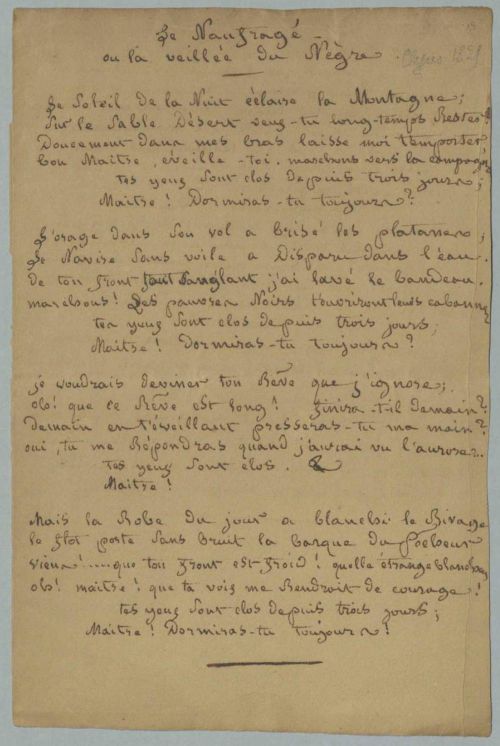 Le Naufragé -
ou la veillée du Nègre
Le Soleil de la Nuit éclaire la Montagne;
Sur le Sable Désert veux-tu long-temps Rester?
Doucement dans mes bras laisse moi t'emporter
bon Maître, éveille-toi. marchons vers la campagne
tes yeux Sont clos depuis trois jours;
Maître! Dormiras-tu toujours?
L'orage dans Son vol a brisé les platanes;
Le Navire Sans voile a Disparu dans l'eau.
de ton front tout Sanglant j'ai lavé le bandeau.
marchons! Les pauvres Noirs t'ouvriront leurs cabannes
tes yeux Sont clos depuis trois jours;
Maître! Dormiras-tu toujours?
je voudrais deviner ton Rêve que j'ignore;
oh! que ce Rêve est long! finira-t-il demain?
demain en t'éveillant presseras-tu ma main?
oui, tu me Répondras quand j'aurai vu l'aurore..
tes yeux Sont clos. &
Maître!
Mais la Robe du jour a blanchi le Rivage
le flot porte Sans bruit la barque du Pêcheur
viens!....que ton front est froid! quelle étrange blancheur
oh! maître! que ta voix me Rendroit de courage!
tes yeux Sont clos depuis trois jours;
Maître! Dormiras-tu toujours!